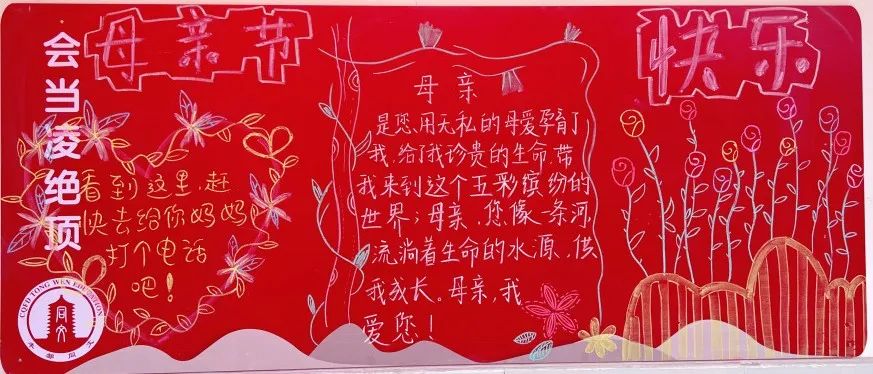 母亲节
快乐
会当凌绝顶
看到这里,赶
快去给你妈妈
打个电话
吧!
母亲
是您、用无私的母爱孕育了
我、给了我珍贵的生命、带
我来到这个五彩缤纷的
世界;母亲、您像一条河,
流淌着生命的水源,供
我成长。母亲,我
爱您!
TONG WEN EDUCATION
同文